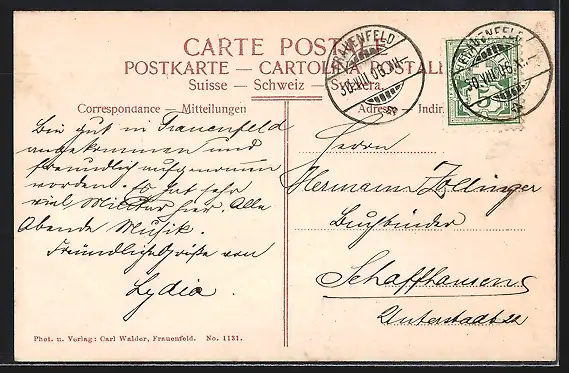 CARTE POSTALE
POSTKARTE — CARTOLINA POSTALE
Suisse — Schweiz — Svizzera
Correspondance — Mitteilungen
Adresse — Indir
FRAUENFELD
30.VIII.06
FRAUENFELD
30.VIII.06
5
Bin gut in Frauenfeld
angekommen und
freundlich aufgenommen
worden. Es hat sehr
viel Militär hier. Alle
Abende Musik.
Freundliche Grüße von
Lydia.
Herrn
Hermann Zollinger
Buchbinder
Schaffhausen
Unterstadt 22
Phot. u. Verlag: Carl Walder, Frauenfeld. No. 1131.